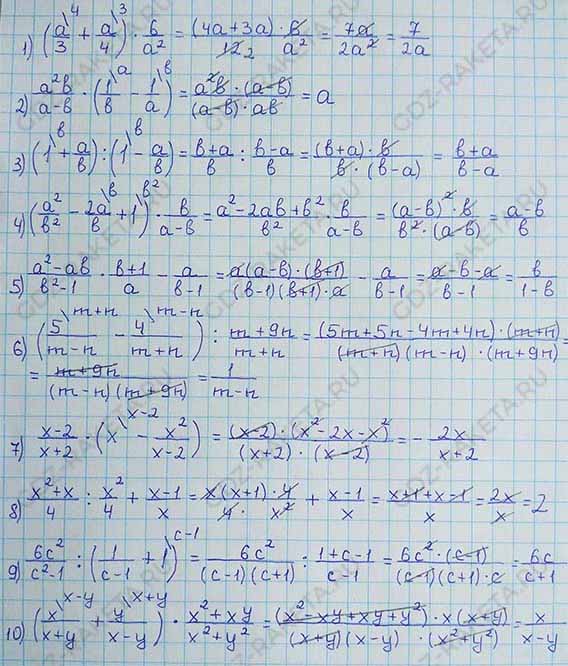 1) (a\⁴/3 + a\³/4) · 6/a² = (4a+3a) · 6/(12 2 a²) = 7a/2a² = 7/2a
2) a²b/(a-b) · (1\ᵃ/b - 1\ᵇ/a) = a²b · (a-b)/((a-b) · ab) = a
3) (1\ᵇ + a/b) : (1\ᵇ - a/b) = (b+a)/b : (b-a)/b = (b+a) · b/(b · (b-a)) = (b+a)/(b-a)
4) (a²/b² - 2a\ᵇ/b + 1\ᵇ²) · b/(a-b) = (a²-2ab+b²)/b² · b/(a-b) = (a-b)² · b/(b² · (a-b)) = (a-b)/b
5) (a²-ab)/(b²-1) · (b+1)/a - a/(b-1) = a(a-b) · (b+1)/((b-1)(b+1) · a) - a/(b-1) = (a-b-a)/(b-1) = b/(1-b)
6) (5\ᵐ⁺ⁿ/(m-n) - 4\ᵐ⁻ⁿ/(m+n)) : (m+9n)/(m+n) = (5m+5n-4m+4n) · (m+n)/((m+n)(m-n) · (m+9n)) =
= (m+9n)/((m-n)(m+9n)) = 1/(m-n)
7) (x-2)/(x+2) · (x\ˣ⁻² - x²/(x-2)) = (x-2) · (x²-2x-x²)/((x+2) · (x-2)) = - 2x/(x+2)
8) (x²+x)/4 : x²/4 + (x-1)/x = x(x+1) · 4/(4 · x²) + (x-1)/x = (x+1+x-1)/x = 2x/x = 2
9) 6c²/(c²-1) : (1/(c-1) + 1\ᶜ⁻¹) = 6c²/((c-1)(c+1)) : (1+c-1)/(c-1) = 6c² · (c-1)/((c-1)(c+1) · c) = 6c/(c+1)
10) (x\ˣ⁻ʸ/(x+y) + y\ˣ⁺ʸ/(x-y)) · (x²+xy)/(x²+y²) = (x²-xy+xy+y²) · x(x+y)/((x+y)(x-y) · (x²+y²)) = x/(x-y)
GDZ-RAKETA.RU